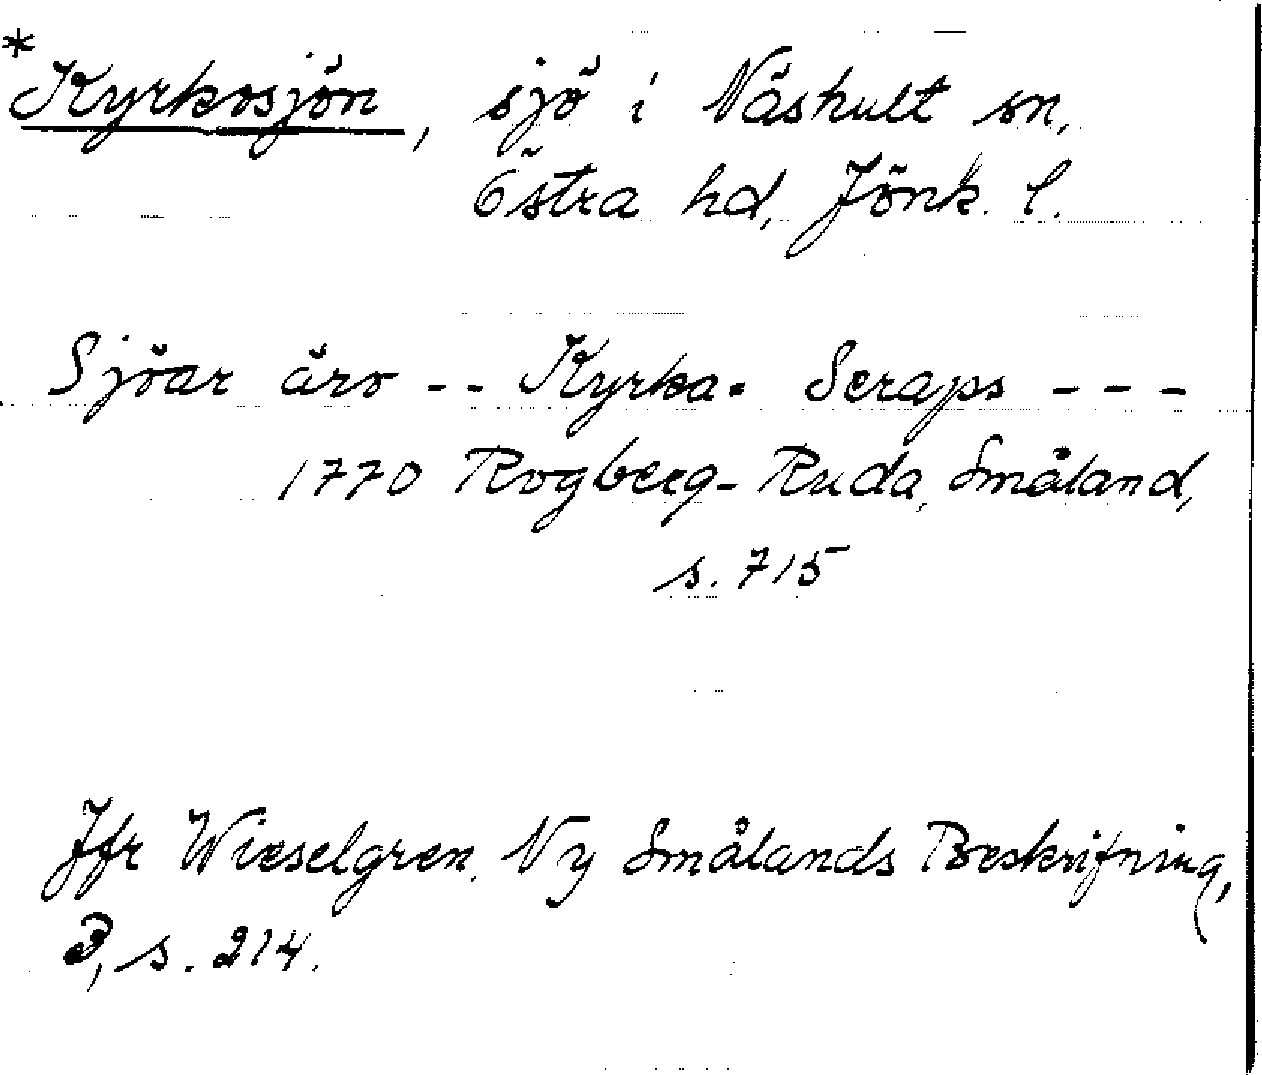 *Kyrkosjön, sjö i Näshult sn,
Östra hd, Jönk. l.
Sjöar äro -- Kyrka- Seraps ---
1770 Rogberg-Ruda, Småland,
s. 715
Jfr Wieselgren, Ny Smålands Beskrifning,
3, s. 214.